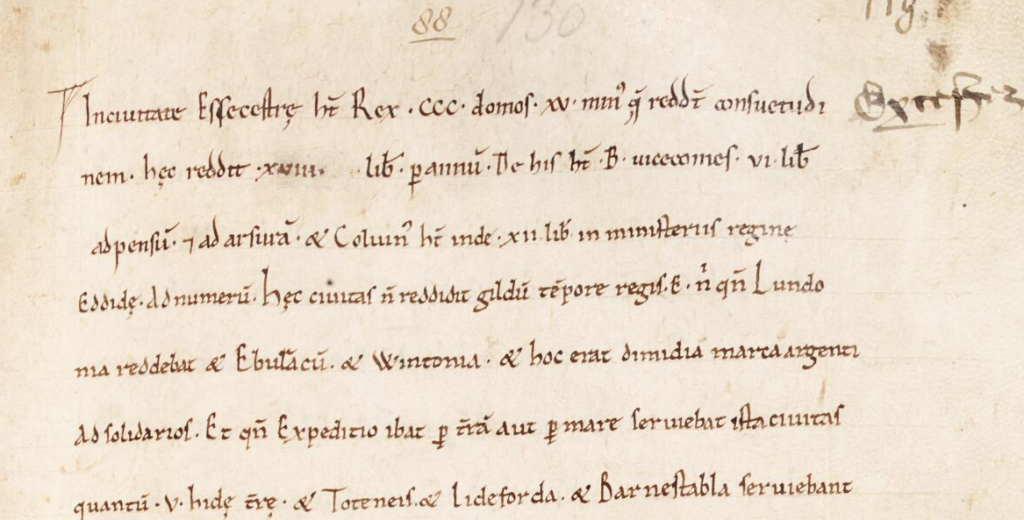 88 130
119.
Inciuitate Essecestrę ht̄ Rex · CCC · domos · xv · min᾽ q̨ reddt̄ consuetudi Excester
nem · hęc reddit · xviii · lib̄ · p̱ annū · De his ht̄ · B · uicecomes · vi · lib̄
adpensū · ⁊ ad arsurā · & Coluin᾽ ht̄ inde · xii · lib̄ in ministeriis regine
Eddidę · Ad numerū · hęc ciuitas n̄ reddidit gildū tēpore regis · E · n̓ qn̄ Lundo
nia reddebat & Ebulācū · & Wintonia · & hoc erat dimidia marca argenti
Ad solidarios · Et qn̄ Expeditio ibat p̱ tr̄ā aut p̱ mare seruiebat ista ciuitas
quantū · v · hidę tr̄ę · & Toteneis · & Lideforda · & Barnestabla seruiebant